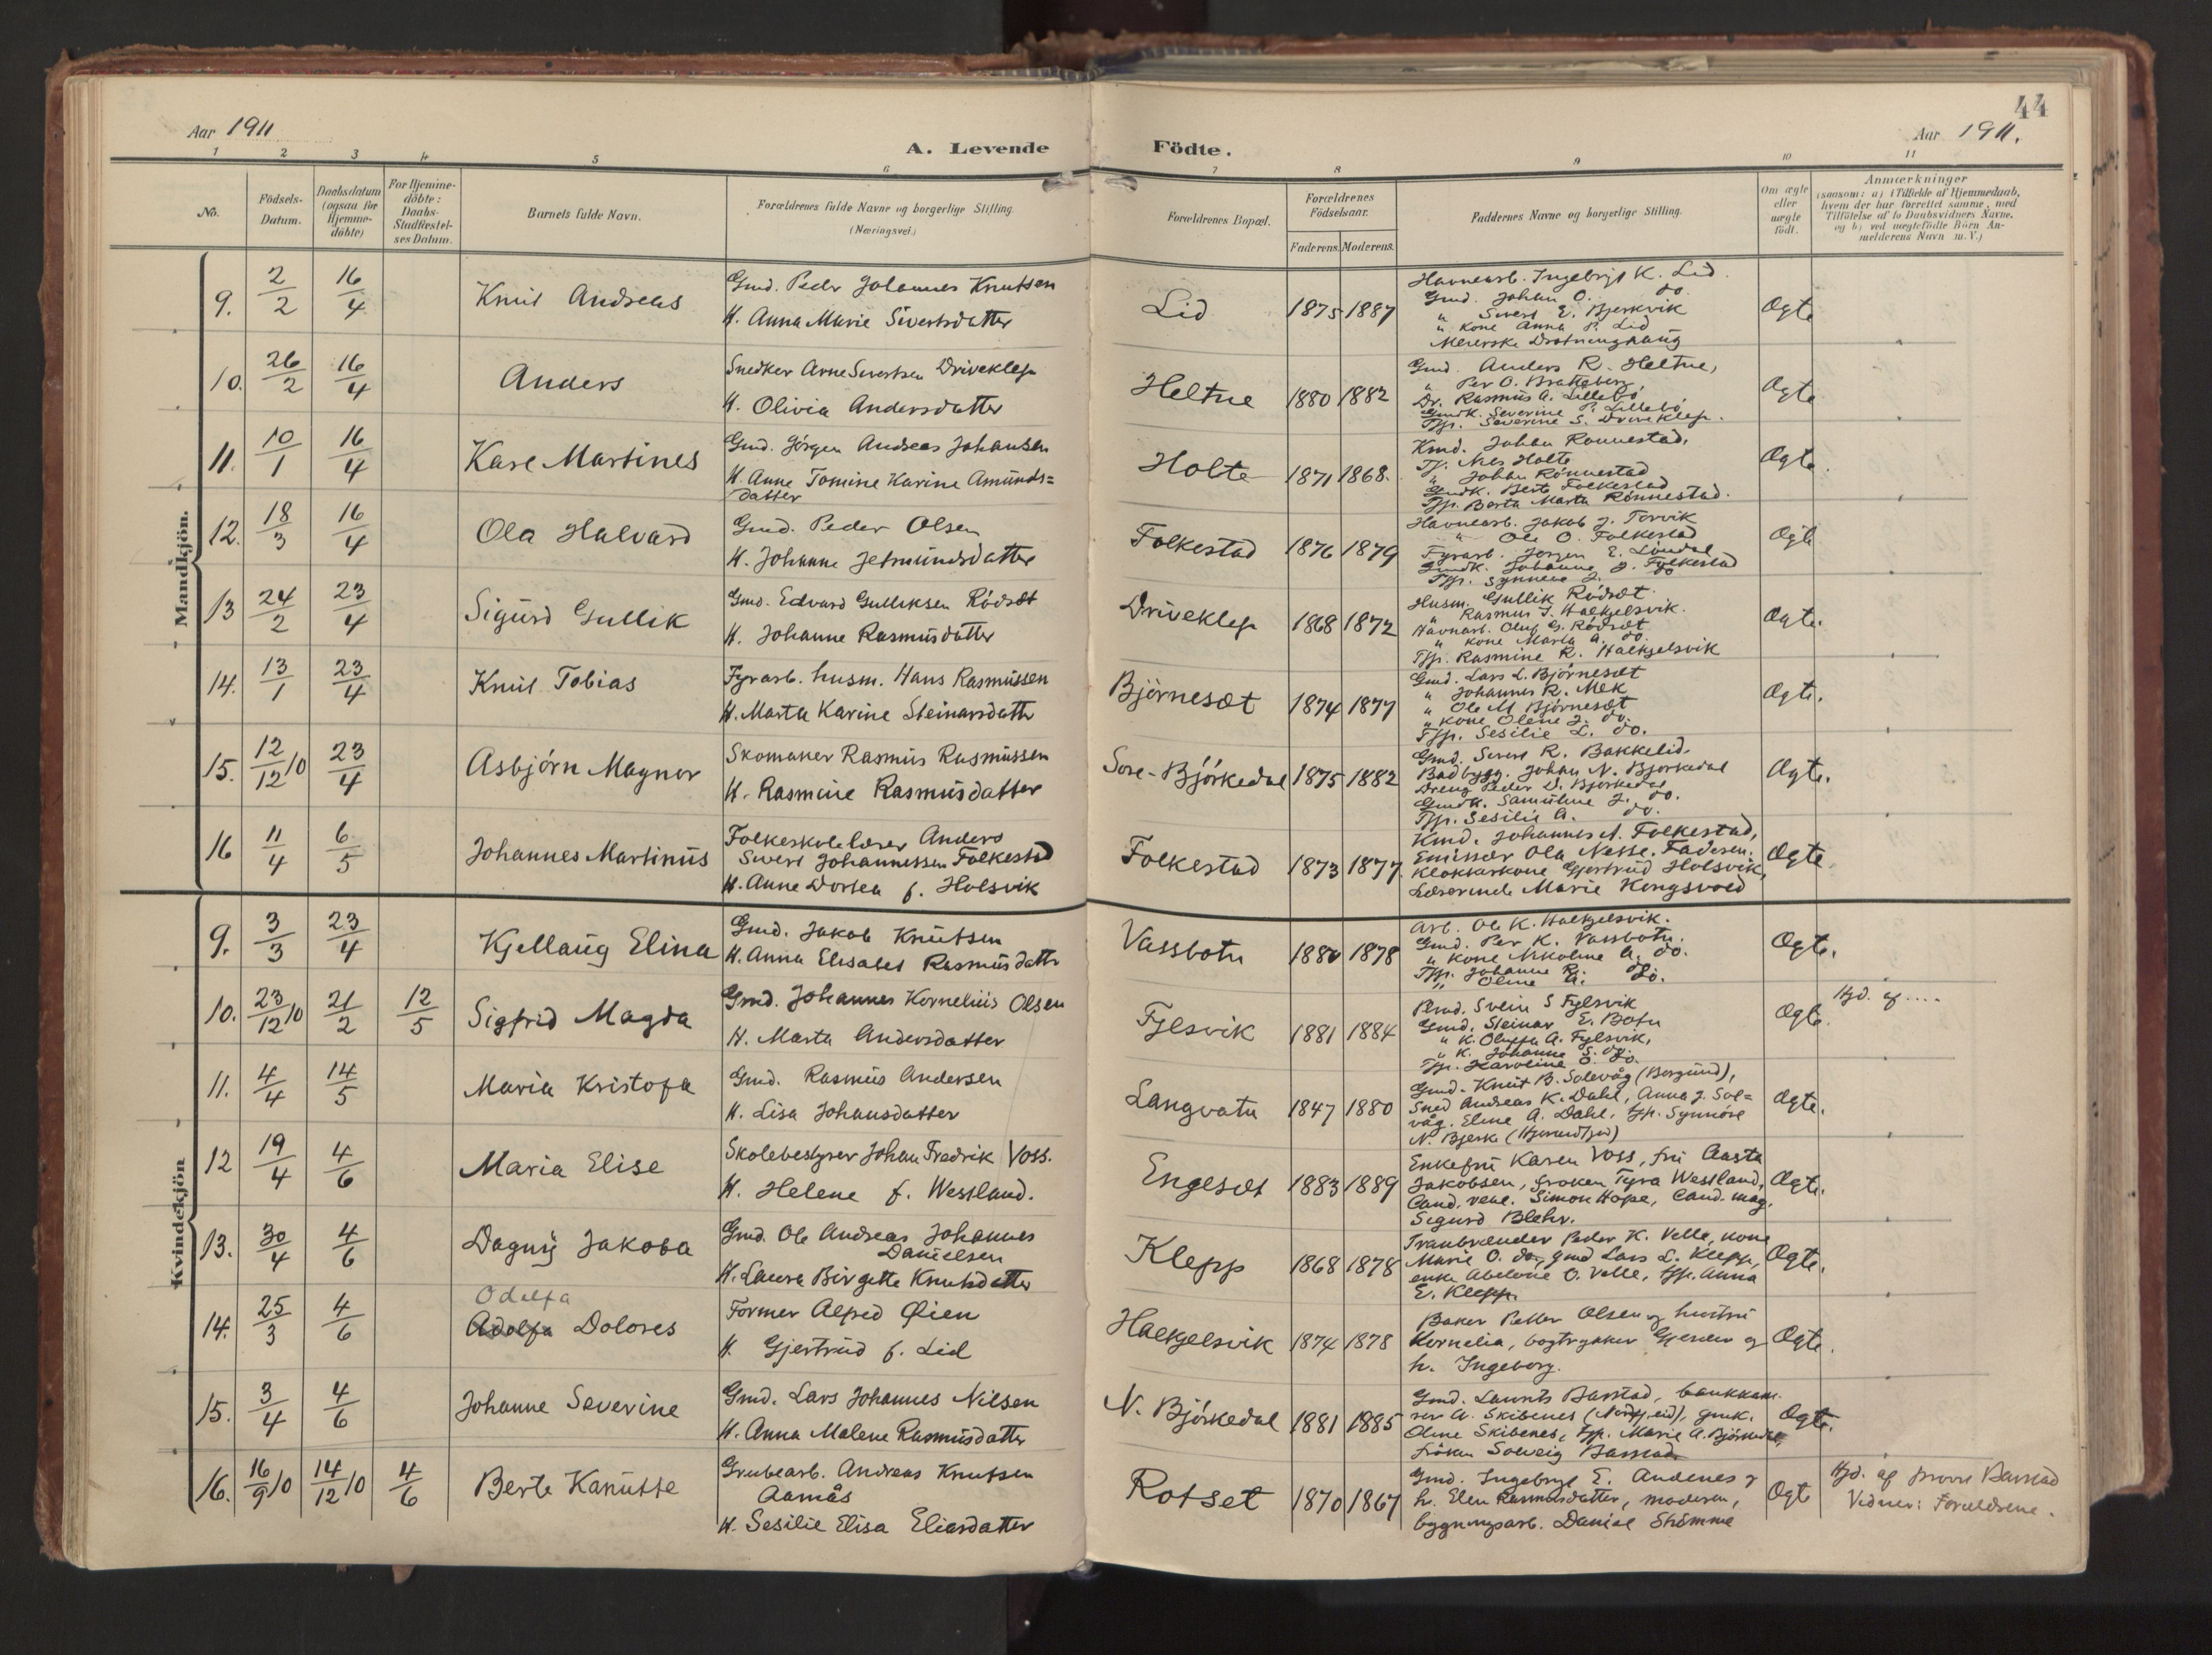 44
Aar 1911
A. Levende Födte.
Aar 1911.
1 2 3 4 5 6 7 8 9 10 11
No.
Födsels-Datum.
Daabsdatum (ogsaa for Hjemme-döbte)
For Hjemme-döbte: Daabs-Stadfæstel-ses Datum.
Barnets fulde Navn.
Forældrenes fulde Navne og borgerlige Stilling
(Næringsvei.)
Forældrenes Bopæl.
Forældrenes Födselsaar.
Faderens. Moderens.
Faddernes Navne og borgerlige Stilling.
Om ægte eller uægte födt.
Anmærkninger
(saasom: a) i Tilfælde af Hjemmedaab,
hvem der har forrettet samme, med
Tilföielse af to Daabsvidners Navne,
og b) ved uægtefödte Börn An-
melderens Navn m. V.)
Mandkjön.
9. 2/2 16/4 Knut Andreas
Gmd. Peder Johannes Knutsen
H. Anna Marie Sivertsdatter
Lid 1875 1887
Havnearb. Ingebrigt K. Lid.
Gmd. Johan O. do.
" Sivert E. Bjerkvik
" kone Anna P. Lid
Meierske Drotninghaug
Ogte
10. 26/2 16/4 Anders
Snedker Arne Sivertsen Driveklep
H. Olivia Andersdatter
Heltne 1880 1882
Gmd. Anders R. Heltne,
" Per O. Bratteberg,
Dr. Rasmus A. Lillebö
Gmdk. Severine P. Lillebö
Tjp. Severine S. Driveklep.
Ogte
11. 10/1 16/4 Kare Martines
Gmd. Jörgen Andreas Johansen
H. Anne Tomine Karine Amunds=
datter
Holte 1871 1868.
Kmd. Johan Rönnestad,
Tj. Nils Holte
" Johan Rönnestad
Gmdk. Berte Folkestad
Tjp. Berta Marta Rönnestad.
Ogte.
12. 18/3 16/4 Ola Halvard
Gmd. Peder Olsen
H. Johanne Jetmundsdatter
Folkestad 1876 1879
Havnearb. Jakob J. Torvik
" Ole O. Folkestad
Fyrarb. Jörgen E. Löndal
Gmdk. Johanne J. Folkestad
Tjp. Synneve J. do
Ogte
13 24/2 23/4 Sigurd Gullik
Gmd. Edvard Gulliksen Rödsæt
H. Johanne Rasmusdatter
Driveklep 1868 1872
Husm. Gullik Rödsæt.
" Rasmus J. Halkjelsvik.
Havnarb. Oluf G. Rödsæt
" kone Marta A. do.
Tjp. Rasmine R. Halkjelsvik
Ogte.
14. 13/1 23/4 Knut Tobias
Fyrarb. husm. Hans Rasmussen
H. Marta Karine Steinarsdattr
Björnesæt 1874 1877
Gmd. Lars L. Björnesæt
" Johannes R. Mek
" Ole M Björnesæt
" kone Olene J. do.
Tjp. Sesilie L. do.
Ogte.
15. 12/12 10 23/4 Asbjörn Magnor
Skomaker Rasmus Rasmussen
H. Rasmine Rasmusdatter
Söre-Björkedal 1875 1882
Gmd. Sivert R. Bakkelid.
Badbygg. Johan N. Bjorkedal
Dreng Peder D. Bjorkedal
Gmdk. Samuline J. do.
Tjp. Sesilie A. do.
Ogte.
16 11/4 6/5 Johannes Martinus
Folkeskolelærer Anders
Sivert Johannessen Folkestad
H. Anne Dortea f. Holsvik
Folkestad 1873 1877.
Kmd. Johannes A. Folkestad,
Emissær Ola Nesse. Faderen.
Klokkerkone Gjertrud Holsvik,
Lærerinde Marie Kongsvold
Ogte
Kvindekjön
9. 3/3 23/4 Kjellaug Elina
Gmd. Jakob Knutsen
H. Anna Elisabet Rasmusdattr
Vassbotn 1880 1878
Arb. Ole K. Halkjelsvik.
Gmd. Per K. Vassbotn.
" kone Nikoline A. do.
Tjp. Johanne R. do.
" Oline A. do.
Ogte.
10. 23/12 10 21/2 12/5 Sigfrid Magda
Gmd. Johannes Kornelius Olsen
H. Marta Andersdatter
Fylsvik 1881 1884
Svein S Fylsvik
Gmd. Steinar E. Botn
" K. Oluffa A. Fylsvik,
" K. Johanne S. do.
Tjp. Karoline O. do.
Ogte.
Hjd. af ....
11. 4/4 14/5 Maria Kristofa
Gmd. Rasmus Andersen
H. Lisa Johansdatter
Langvatn 1847 1880
Gmd. Knut B. Solevåg (Borgund),
Sned Andreas K. Dahl, Anna J. Sol=
våg. Eline A. Dahl, tjp. Synnöve
N. Bjerk (Hjörundfjord)
Ogte.
12 19/4 4/6 Maria Elise
Skolebestyrer Johan Fredrik Voss.
H. Helene f. Westland.
Engeset 1883 1889
Enkefru Karen Voss, fru Aasta
Jakobsen, fröken Tyra Westland,
Cand. real. Simon Hope, Cand. mag.
Sigurd Blehr.
Ogte.
13. 30/4 4/6 Dagny Jakoba
Gmd. Ole Andreas Johannes
Danielsen
H. Laura Birgitte Knutsdatter
Klepp 1868 1878
Tranbrænder Peder K. Velle, kone
Marie O. do, gmd Lars L. Klepp,
enke Abelone O. Velle, tjp. Anna
E. Klepp.
Ogte.
14. 25/3 4/6 Odelfa
Adolfa Dolores
Former Alfred Øien
H. Gjertrud f. Lid
Halkjelsvik 1874 1878
Baker Petter Olsen og hustru
Kornelia, bogtrykker Gjerder og
h. Ingeborg.
Ogte.
15. 3/4 4/6 Johanne Severine
Gmd. Lars Johannes Nilsen
H. Anna Malene Rasmusdattr
N. Björkedal 1881 1885
Gmd. Laurits Barstad, bankkasse-
rer A. Skibenes (Nordfj.eid), gmk.
Oline Skibenes, tjp. Marie A. Björkedal,
fröken Solveig Barstad
Ogte.
16. 16/9 10 14/12 10 4/6 Berte Kanutte
Grubearb. Andreas Knutsen
Aamås
H. Sesilie Elisa Eliasdatter
Rotset 1870 1867
Gmd. Ingebrigt E. Andenes og
h. Elen Rasmusdatter, moderen,
bygningsarb. Daniel Strömme
Ogte
Hjd. af provst Barstad
Vidner: Forældrene.